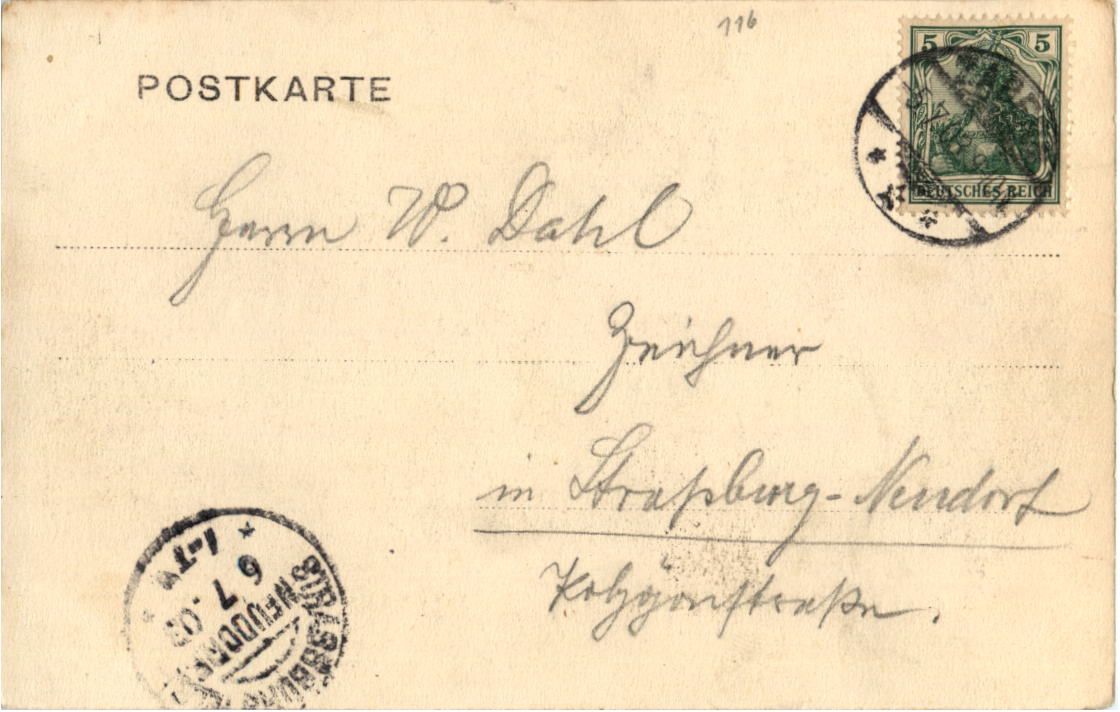 116
POSTKARTE
5 5
DEUTSCHES REICH
Herrn W. Dahl
Zeichner
in Straßburg-Neudorf
Polygonstraße.
STRASSBURG
NEUDORF
6 7 03
1-7N